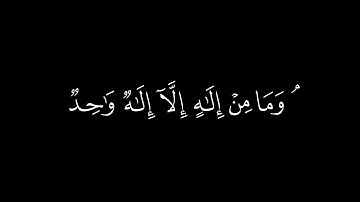 ۘ وَمَا مِنْ إِلَـٰهٍ إِلَّآ إِلَـٰهٌ وَٰحِدٌ